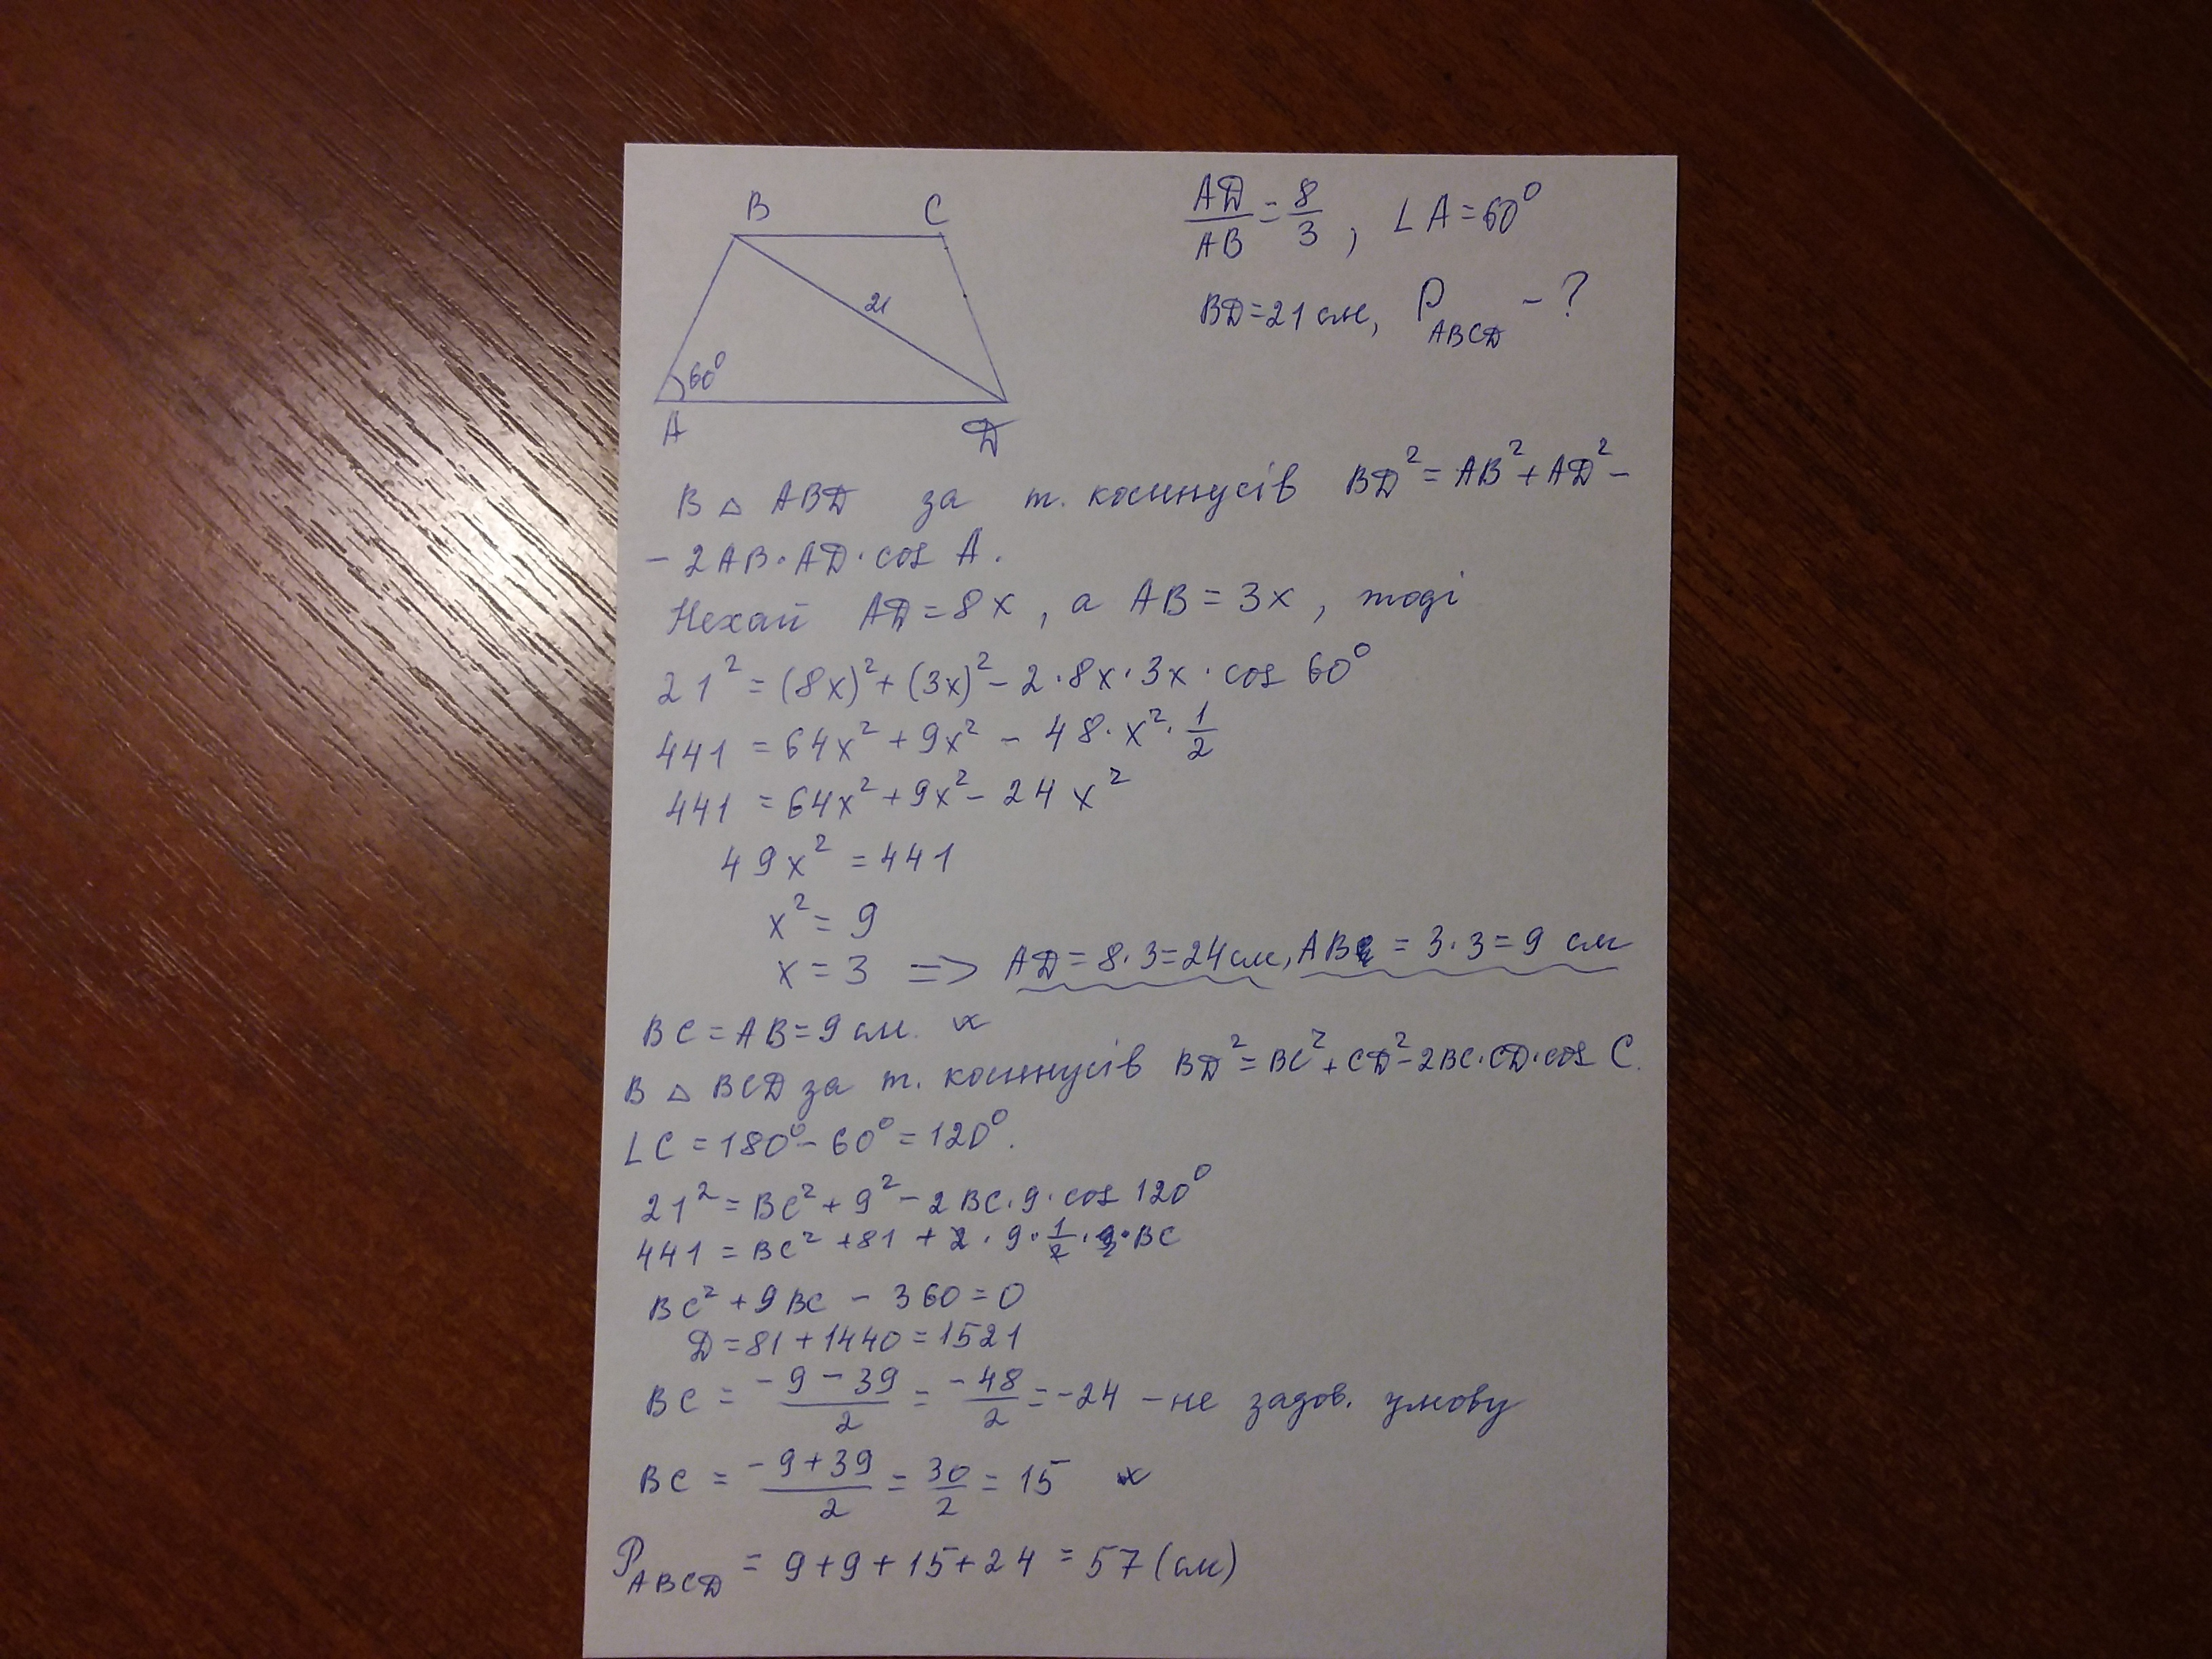 B C
21
60°
A D
AD/AB = 8/3, ∠A = 60°
BD = 21 см, P_ABCD - ?
В △ ABD за т. косинусів BD² = AB² + AD² -
- 2AB · AD · cos A.
Нехай AD = 8x, а AB = 3x, тоді
21² = (8x)² + (3x)² - 2 · 8x · 3x · cos 60°
441 = 64x² + 9x² - 48 · x² · 1/2
441 = 64x² + 9x² - 24x²
49x² = 441
x² = 9
x = 3 => AD = 8 · 3 = 24 см, AB = 3 · 3 = 9 см
BC = AB = 9 см. x
В △ BCD за т. косинусів BD² = BC² + CD² - 2BC · CD · cos C.
∠C = 180° - 60° = 120°.
21² = BC² + 9² - 2BC · 9 · cos 120°
441 = BC² + 81 + 2 · 9 · 1/2 · BC
BC² + 9BC - 360 = 0
D = 81 + 1440 = 1521
BC = (-9 - 39)/2 = -48/2 = -24 - не задов. умову
BC = (-9 + 39)/2 = 30/2 = 15 x
P_ABCD = 9 + 9 + 15 + 24 = 57 (см)